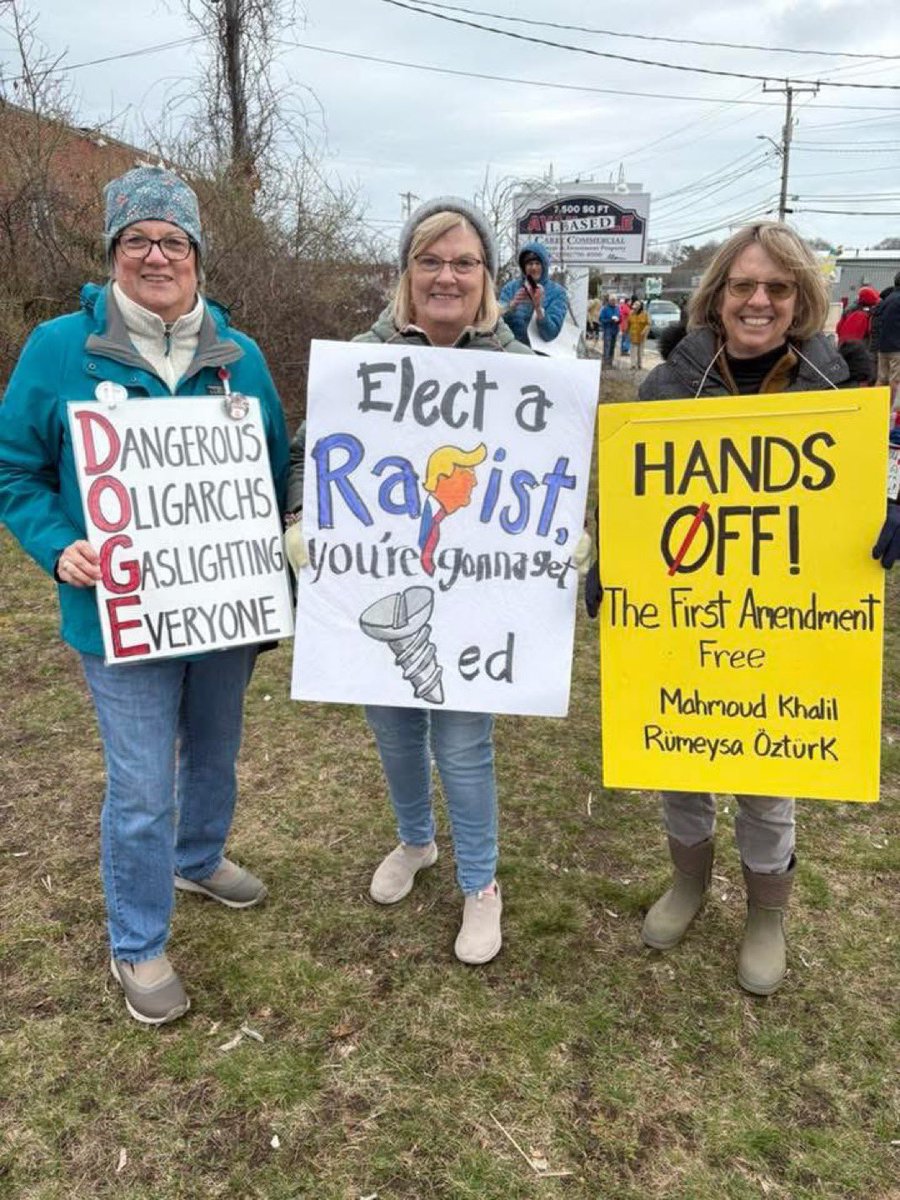 7,500 SQ FT
LEASED
CAREY COMMERCIAL
DANGEROUS
OLIGARCHS
GASLIGHTING
EVERYONE
Elect a
Ra ist,
you're gonna get
ed
HANDS
OFF!
The First Amendment
Free
Mahmoud Khalil
Rümeysa Öztürk